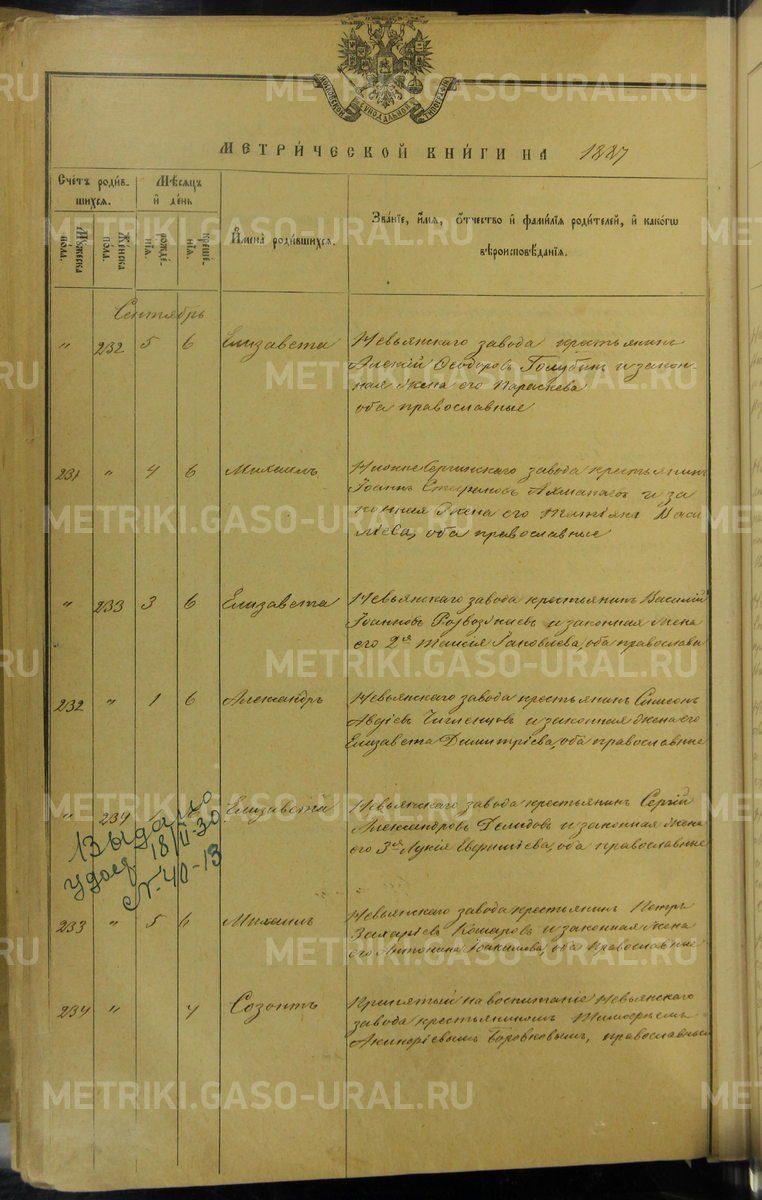 КІЕВСКОЙ СѴНОДАЛЬНОЙ ТИПОГРАФІИ
МЕТРИЧЕСКОЙ КНИГИ НА 1887
Счетъ родив-
шихся.
Мѣсяцъ
и день
Имена родившихся.
Званіе, имя, отчество и фамилія родителей, и какогѡ
вѣроисповѣданія.
Мужеска
пола.
Женска
пола.
рожде-
нія.
креще-
нія.
Сентябрь
" 232 5 6 Елизавета
Невьянскаго завода крестьянинъ
Алексій Ѳеодоровъ Голубинъ и закон-
ная жена его Параскева
оба православные
231 " 4 6 Михаилъ
НижнеСергинскаго завода крестьянинъ
Іоаннъ Стефановъ и за
конная жена его Васи
лiева, оба православные
" 233 3 6 Елизавета
Невьянскаго завода крестьянинъ Василій
Іоанновъ и законная жена
его 2ая Таисія Іаковлева, оба православн
232 " 1 6 Александръ
Невьянскаго завода крестьянинъ Симеонъ
Авдіевъ и законная жена его
Елизавета Димитріева, оба православные
" 234 Елизавета
Невьянскаго завода крестьянинъ Сергій
Александровъ Демидовъ и законная жена
его 3ая Лукія оба православные
Выдано
удост 18/II-30
N-40-13
233 " 5 6 Михаилъ
Невьянскаго завода крестьянинъ Петръ
Захаріевъ Комаровъ и законная жена
его Антонина Іоакимова, оба православные
234 " 7 Созонтъ
Принятый на воспитаніе Невьянскаго
завода крестьяниномъ Тимоѳеемъ
Боровковымъ, православнымъ
METRIKI.GASO-URAL.RU